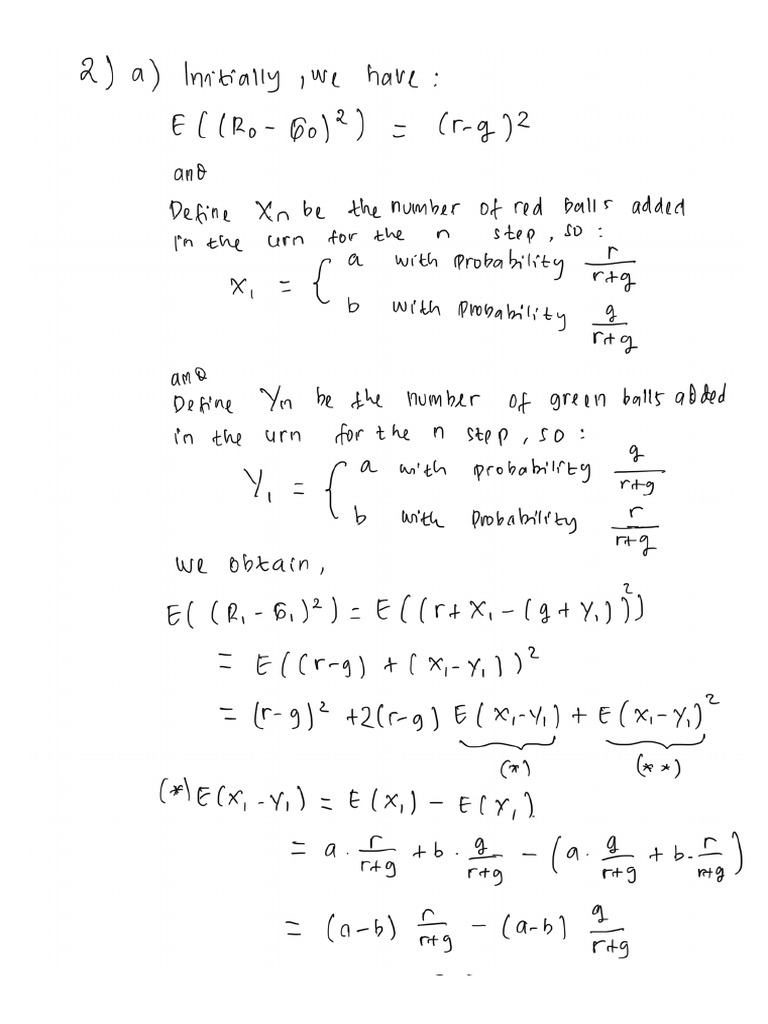 2) a) Initially, we have:
E((R₀ - G₀)²) = (r-g)²
and
Define Xn be the number of red balls added
in the urn for the n step, so:
X₁ = { a with probability r/(r+g)
b with probability g/(r+g)
and
Define Yn be the number of green balls added
in the urn for the n step, so:
Y₁ = { a with probability g/(r+g)
b with probability r/(r+g)
we obtain,
E((R₁ - G₁)²) = E((r+X₁ - (g+Y₁))²)
= E((r-g) + (X₁-Y₁))²
= (r-g)² + 2(r-g) E(X₁-Y₁) + E(X₁-Y₁)²
(*) (**)
(*) E(X₁-Y₁) = E(X₁) - E(Y₁)
= a · r/(r+g) + b · g/(r+g) - (a · g/(r+g) + b · r/(r+g))
= (a-b) r/(r+g) - (a-b) g/(r+g)